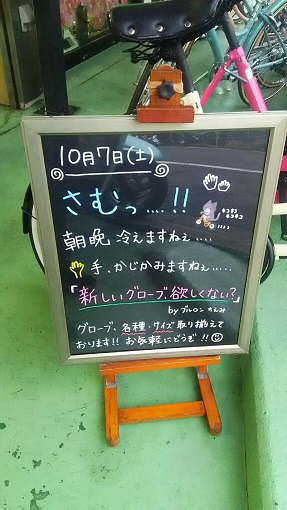 10月7日(土)
さむっ....!!
朝晩 冷えますねぇ....
手、かじかみますねぇ.....
「新しいグローブ欲しくない?」
by ブルロン
グローブ、各種・サイズ取り揃えて
おります!! お気軽にどうぞ!!